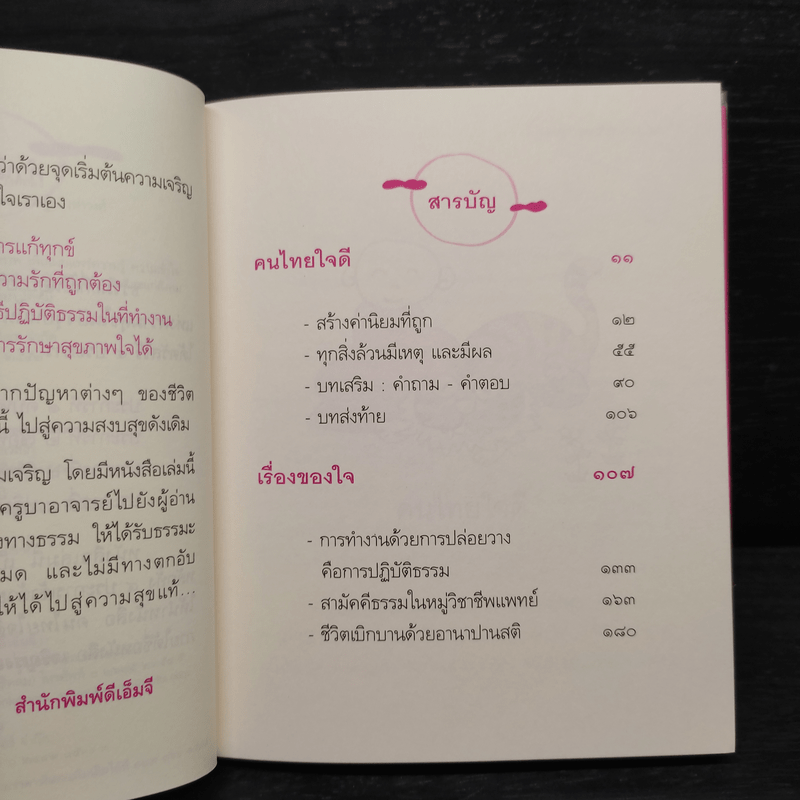 ว่าด้วยจุดเริ่มต้นความเจริญ
ใจเราเอง
การแก้ทุกข์
ความรักที่ถูกต้อง
ธีปฏิบัติธรรมในที่ทำงาน
การรักษาสุขภาพใจได้
ากปัญหาต่างๆ ของชีวิต
นี้ ไปสู่ความสงบสุขดังเดิม
มเจริญ โดยมีหนังสือเล่มนี้
ครูบาอาจารย์ไปยังผู้อ่าน
งทางธรรม ให้ได้รับธรรมะ
มด และไม่มีทางตกอับ
ให้ได้ไปสู่ความสุขแท้...
สำนักพิมพ์ดีเอ็มจี
สารบัญ
คนไทยใจดี ๑๑
- สร้างค่านิยมที่ถูก ๑๒
- ทุกสิ่งล้วนมีเหตุ และมีผล ๕๕
- บทเสริม : คำถาม - คำตอบ ๙๐
- บทส่งท้าย ๑๐๖
เรื่องของใจ ๑๐๗
- การทำงานด้วยการปล่อยวาง
คือการปฏิบัติธรรม ๑๓๓
- สามัคคีธรรมในหมู่วิชาชีพแพทย์ ๑๖๓
- ชีวิตเบิกบานด้วยอานาปานสติ ๑๘๐